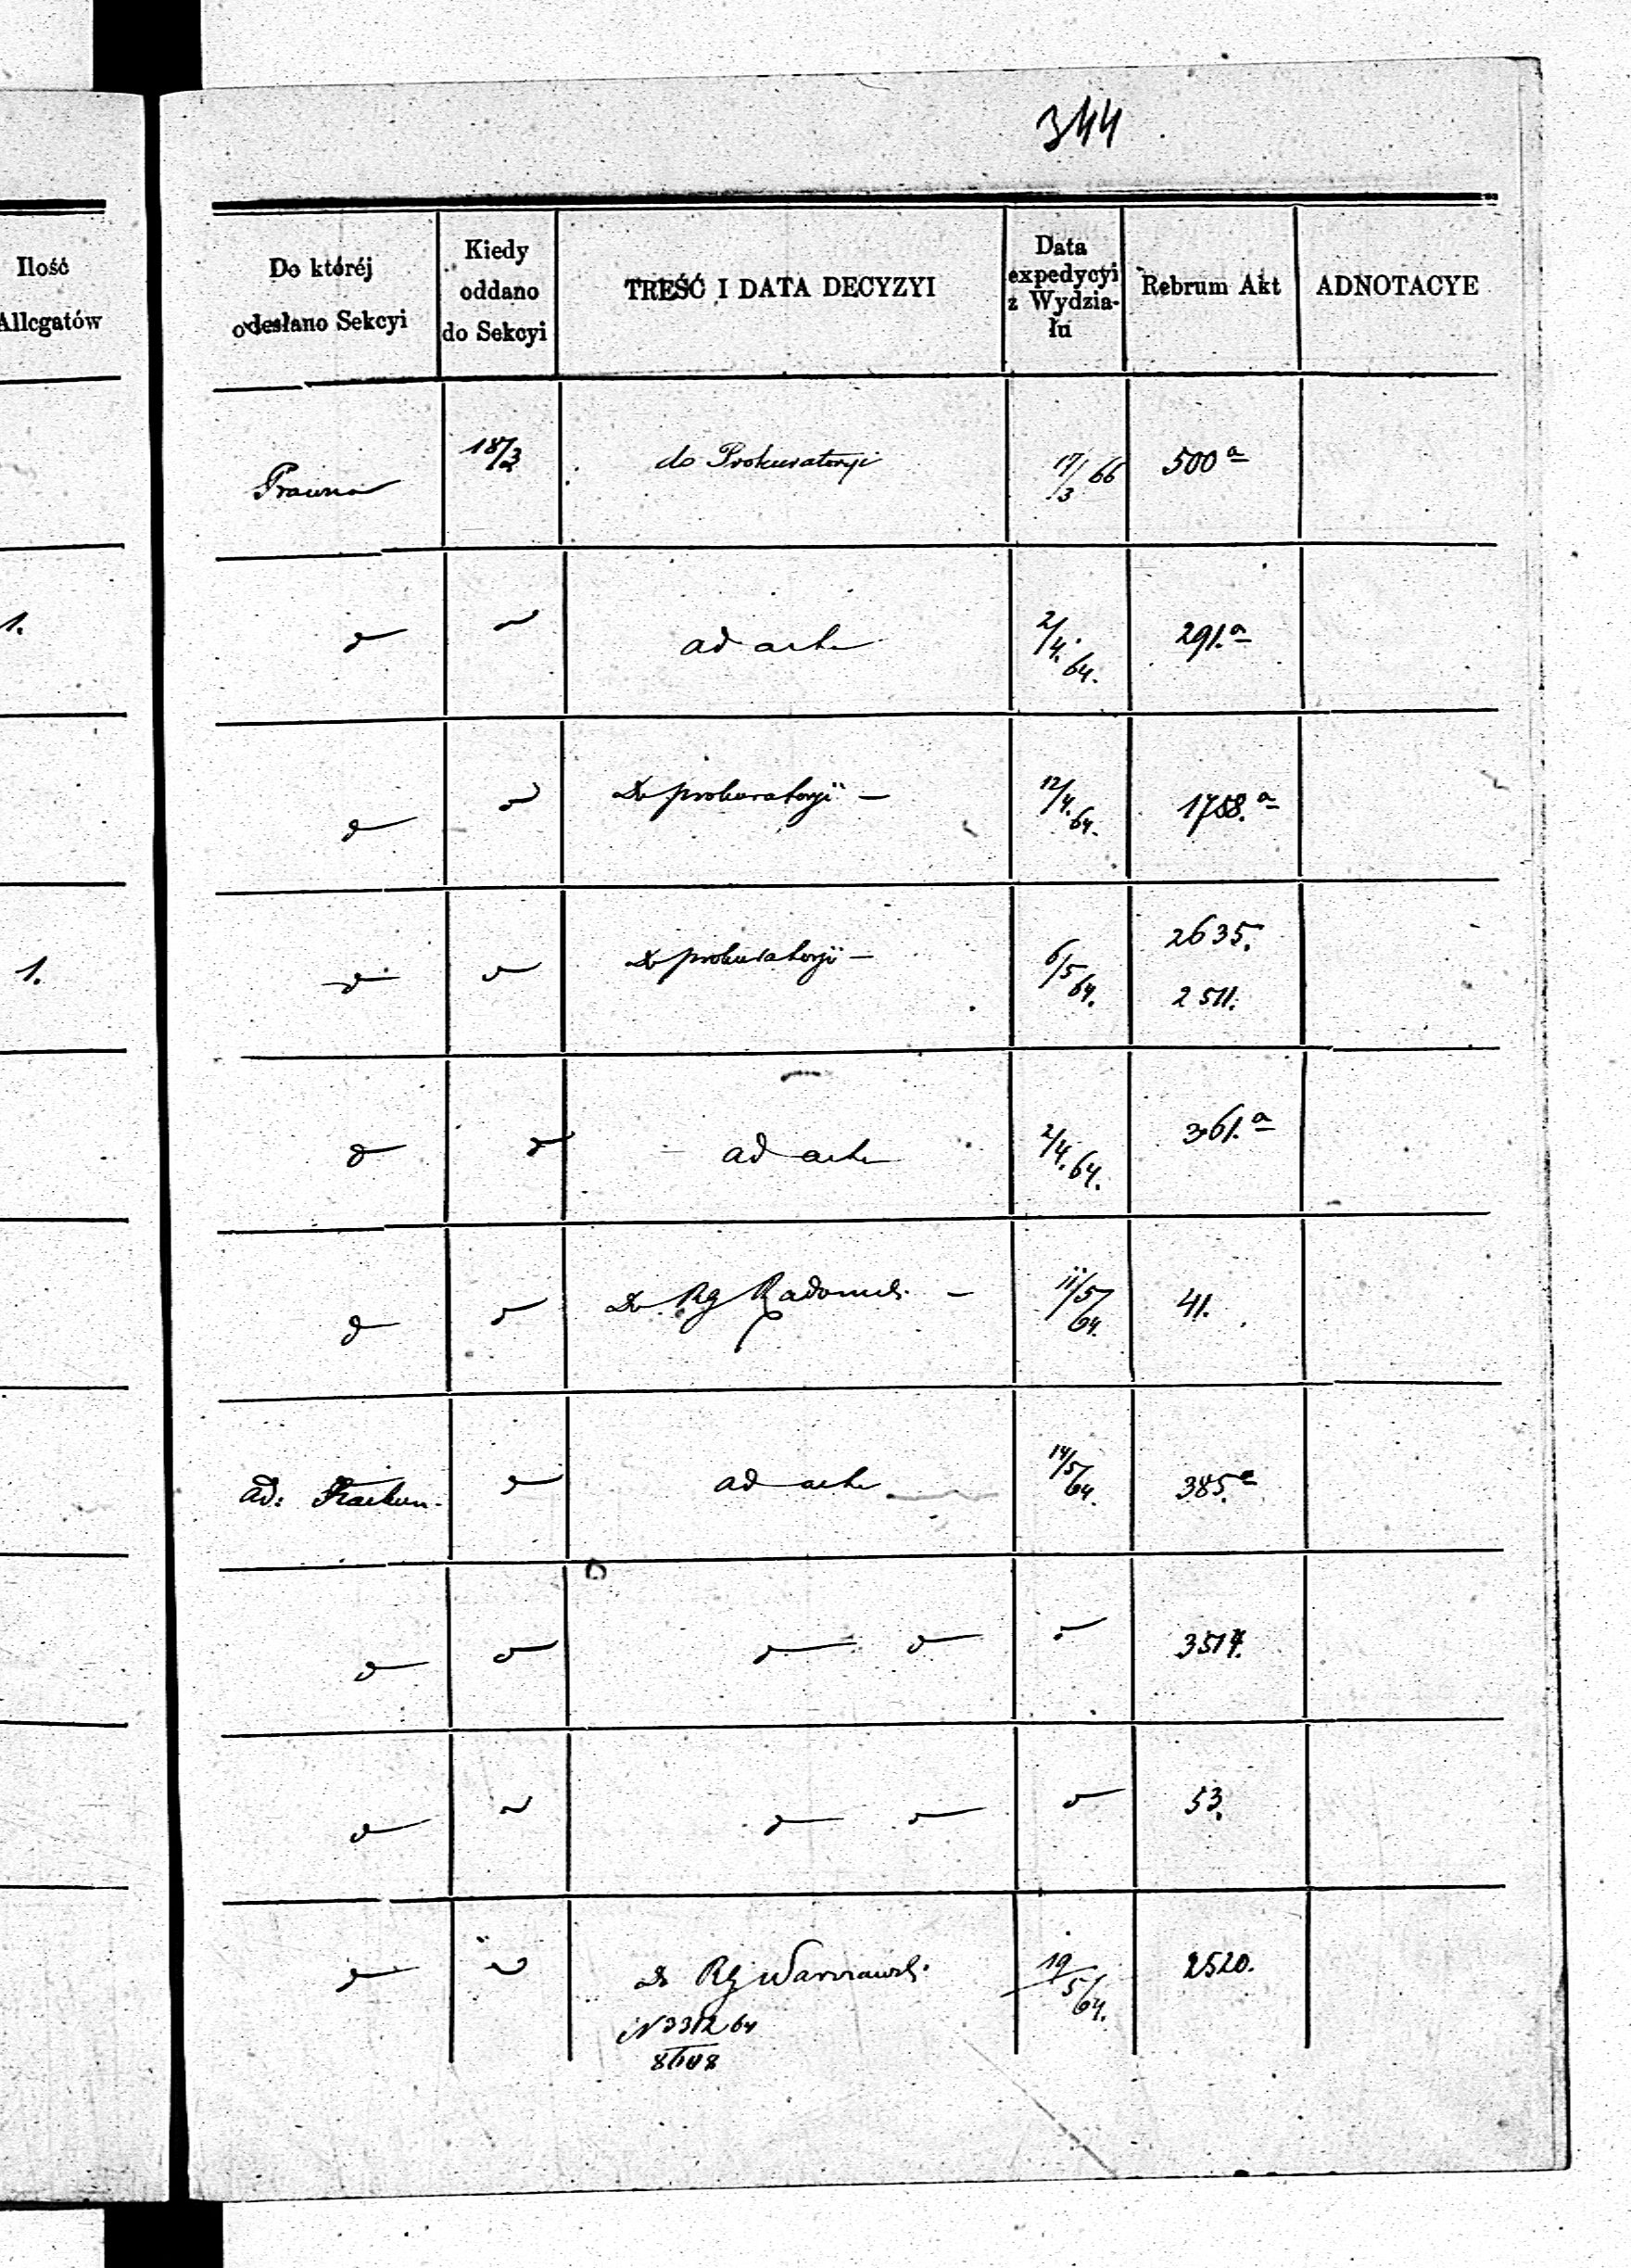 344
Ilość
Allegatów
Do któréj
odesłano Sekcyi
Kiedy
oddano
do Sekcyi
TREŚĆ I DATA DECYZYI
Data
expedycyi
z Wydzia-
łu
Rebrum Akt
ADNOTACYE
Prawna 18/3 do Prokuratoryi 17/3 66 500 a
1.
ad acta 2/4. 64. 291. a
Do prokuratoryi — 12/4. 64. 1758. a
1.
Do prokuratoryi — 6/5 64. 2635.
2511.
ad acta 2/4. 64. 361. a
Do Rg Radomsk. — 11/5 64. 41.
ad: ad acta 14/5 64. 385.
3517.
53.
Do Rg Warszawsk. 19/5 64. 2520.
N 3312 64